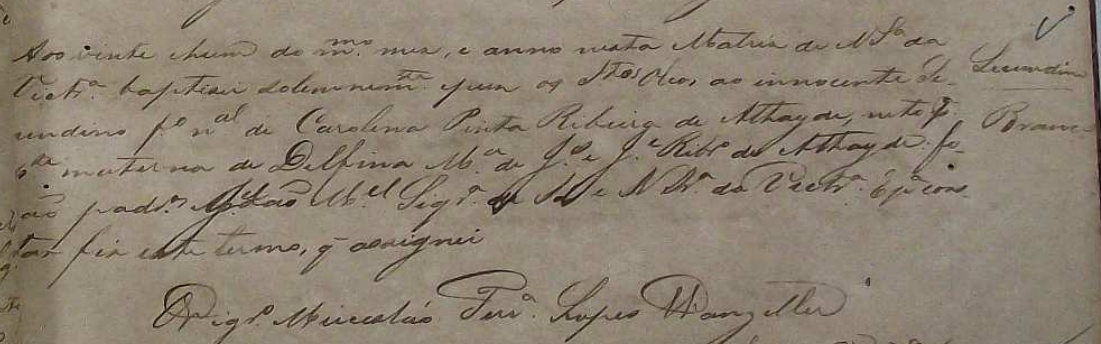 Aos vinte e hum do mmo mez, e anno nesta Matriz de N Sa da
Victra baptisei solemnemte e puz os Stos Oleos ao innocente Se- Secundino
cundino fo nal de Carolina Pinta Ribeira de Athayde, neto p. Branco
pte materna de Delfina Ma de J. e Je Ribro de Athayde. fo-
rão padros Mel Segra e N Sra da Victra E pa cons
tar fiz este termo, q assignei
O Vigro Miceslás Ferra Lopes Wanzeller